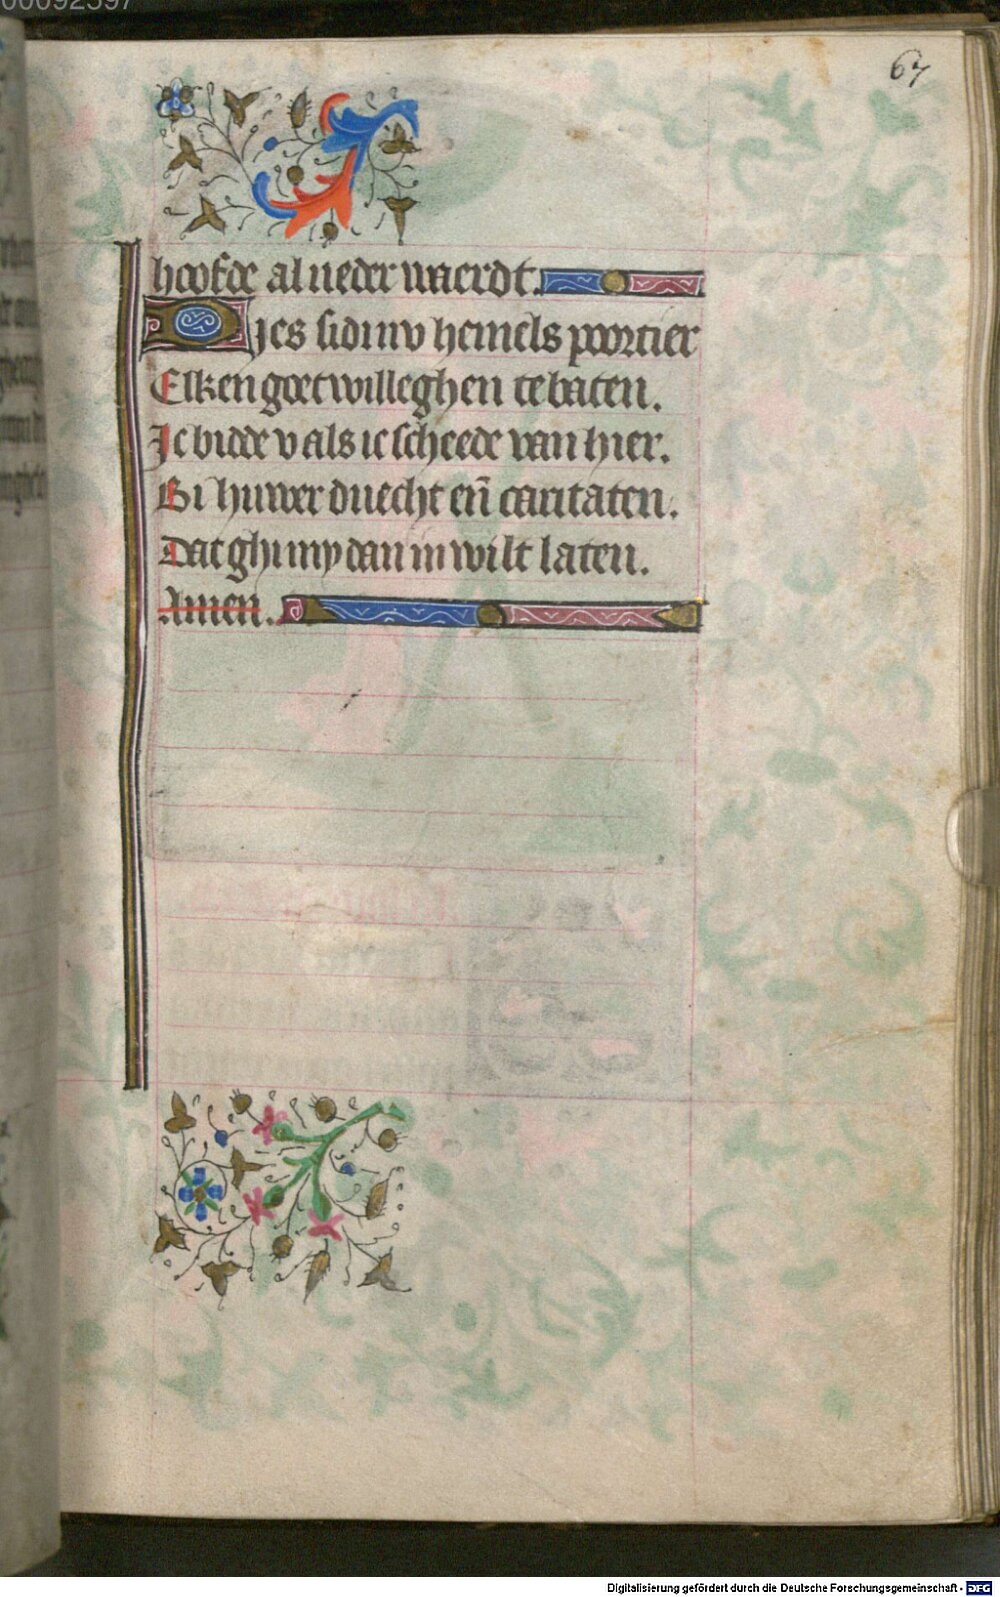 67
hoofde al neder waerdt.
Dies sidi nv hemels poortier
Elken goetwilleghen te baten.
Ic bidde v als ic scheede van hier.
Bi huwer duecht en̄ caritaten.
Dat ghi my dan in wilt laten.
Amen.
Digitalisierung gefördert durch die Deutsche Forschungsgemeinschaft - DFG